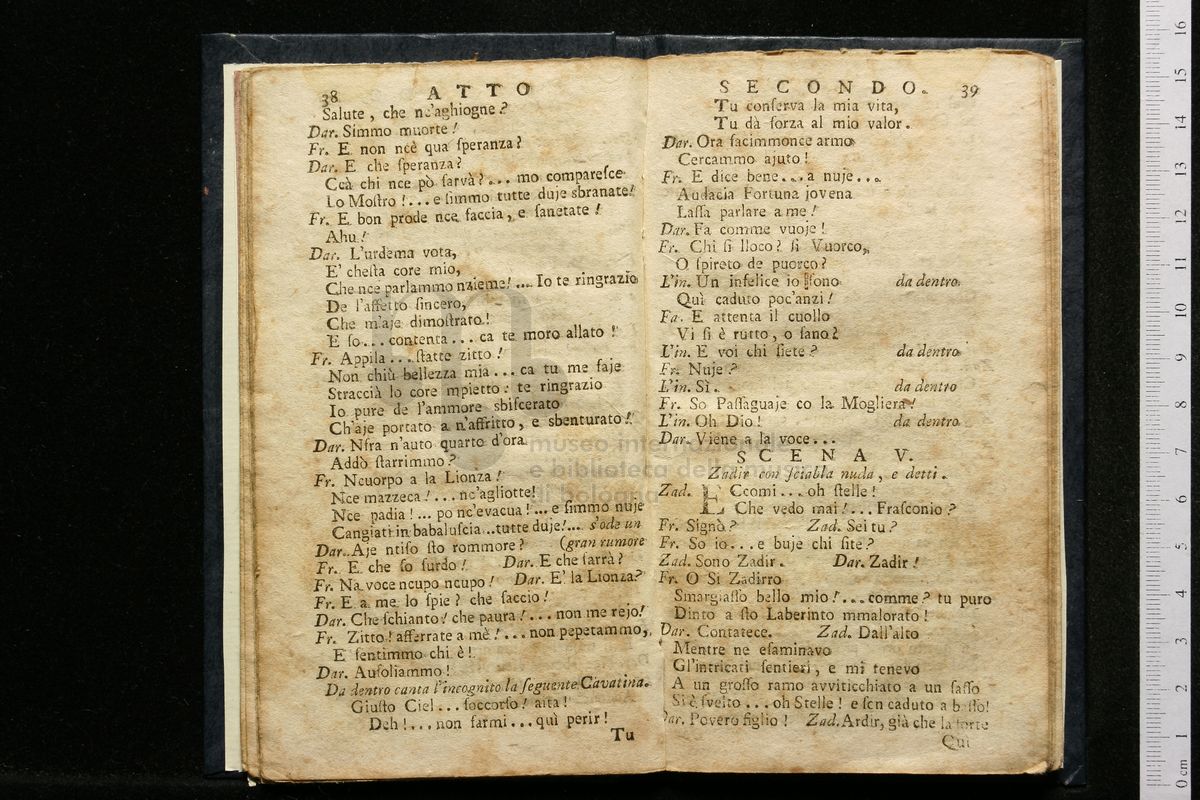 38 ATTO
Salute, che nc'aghiogne?
Dar. Simmo muorte!
Fr. E non ncè qua ſperanza?
Dar. E che ſperanza?
Ccà chi nce pò ſarvà?... mo compareſce
Lo Moſtro!... e ſimmo tutte duje sbranate!
Fr. E bon prode nce faccia, e ſanetate!
Ahu!
Dar. L'urdema vota,
E' cheſta core mio,
Che nce parlammo nzieme!.... Io te ringrazio
De l'affetto ſincero,
Che m'aje dimoſtrato!
E ſo... contenta... ca te moro allato!
Fr. Appila... ſtatte zitto!
Non chiù bellezza mia... ca tu me faje
Straccià lo core mpietto: te ringrazio
Io pure de l'ammore sbiſcerato
Ch'aje portato a n'affritto, e sbenturato!
Dar. Nfra n'auto quarto d'ora
Addò ſtarrimmo?
Fr. Ncuorpo a la Lionza!
Nce mazzeca!... nc'agliotte!
Nce padia!... po nc'evacua!... e ſimmo nuje
Cangiati in babaluſcia...tutte duje!.... s'ode un
Dar. Aje ntiſo ſto rommore? (gran rumore
Fr. E che ſo ſurdo! Dar. E che ſarrà?
Fr. Na voce ncupo ncupo! Dar. E' la Lionza?
Fr. E a me lo ſpie? che ſaccio!
Dar. Che ſchianto! che paura!... non me rejo!
Fr. Zitto! afferrate a mè!... non pepetammo,
E ſentimmo chi è!
Dar. Auſoliammo!
Da dentro canta l'incognito la ſeguente Cavatina.
Giuſto Ciel... ſoccorſo! aita!
Deh!... non farmi... quì perir!
Tu
SECONDO. 39
Tu conſerva la mia vita,
Tu dà forza al mio valor.
Dar. Ora facimmonce armo
Cercammo ajuto!
Fr. E dice bene... a nuje...
Audacia Fortuna jovena
Laſſa parlare a me!
Dar. Fa comme vuoje!
Fr. Chi ſi lloco? ſi Vuorco,
O ſpireto de puorco?
L'in. Un infelice io ſono da dentro
Quì caduto poc'anzi!
Fa. E attenta il cuollo
Vi ſi è rutto, o ſano?
L'in. E voi chi ſiete? da dentro
Fr. Nuje?
L'in. Sì. da dentro
Fr. So Paſſaguaje co la Mogliera!
L'in. Oh Dio! da dentro
Dar. Viene a la voce...
SCENA V.
Zadir con ſciabla nuda, e detti.
Zad. ECcomi... oh ſtelle!
Che vedo mai!... Fraſconio?
Fr. Signò? Zad. Sei tu?
Fr. So io... e buje chi ſite?
Zad. Sono Zadir. Dar. Zadir!
Fr. O Si Zadirro
Smargiaſſo bello mio!... comme? tu puro
Dinto a ſto Laberinto mmalorato!
Dar. Contatece. Zad. Dall'alto
Mentre ne eſaminavo
Gl'intricati ſentieri, e mi tenevo
A un groſſo ramo avviticchiato a un ſaſſo
Si è ſvelto... oh Stelle! e ſon caduto a baſſo!
Dar. Povero figlio! Zad. Ardir, già che la ſorte
Qui
museo internazionale
e biblioteca della musica
di bologna